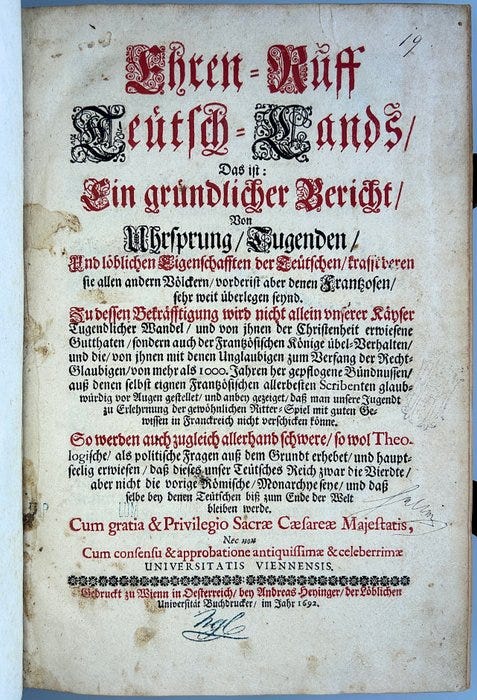 19.
Ehren-Ruff
Teütsch-Lands/
Das ist:
Ein gründlicher Bericht/
Von
Uhrsprung/Tugenden/
Und löblichen Eigenschafften der Teütschen/krafft deren
sie allen andern Völckern/vorderist aber denen Frantzosen/
sehr weit überlegen seynd.
Zu dessen Bekräfftigung wird nicht allein vnserer Käyser
Tugendlicher Wandel/ und von jhnen der Christenheit erwiesene
Gutthaten/sondern auch der Frantzösischen Könige übel-Verhalten/
und die/von jhnen mit denen Unglaubigen zum Verfang der Recht-
Glaubigen/von mehr als 1000. Jahren her gepflogene Bündnussen/
auß denen selbst eignen Frantzösischen allerbesten Scribenten glaub-
würdig vor Augen gestellet/ und anbey gezeiget/daß man unsere Jugendt
zu Erlehrnung der gewöhnlichen Ritter-Spiel mit guten Ge-
wissen in Franckreich nicht verschicken könne.
So werden auch zugleich allerhand schwere/so wol Theo-
logische/ als politische Fragen auß dem Grundt erhebet/ und haupt-
seelig erwiesen/ daß dieses unser Teütsches Reich zwar die Vierdte/
aber nicht die vorige Römische/ Monarchye seye/ und daß
selbe bey denen Teütschen biß zum Ende der Welt
bleiben werde.
Cum gratia & Privilegio Sacræ Cæsareæ Majestatis,
Nec non
Cum consensu & approbatione antiquissimæ & celeberrimæ
UNIVERSITATIS VIENNENSIS.
Gedruckt zu Wienn in Oesterreich/ bey Andreas Heyinger/der Löblichen
Universität Buchdrucker/ im Jahr 1692.